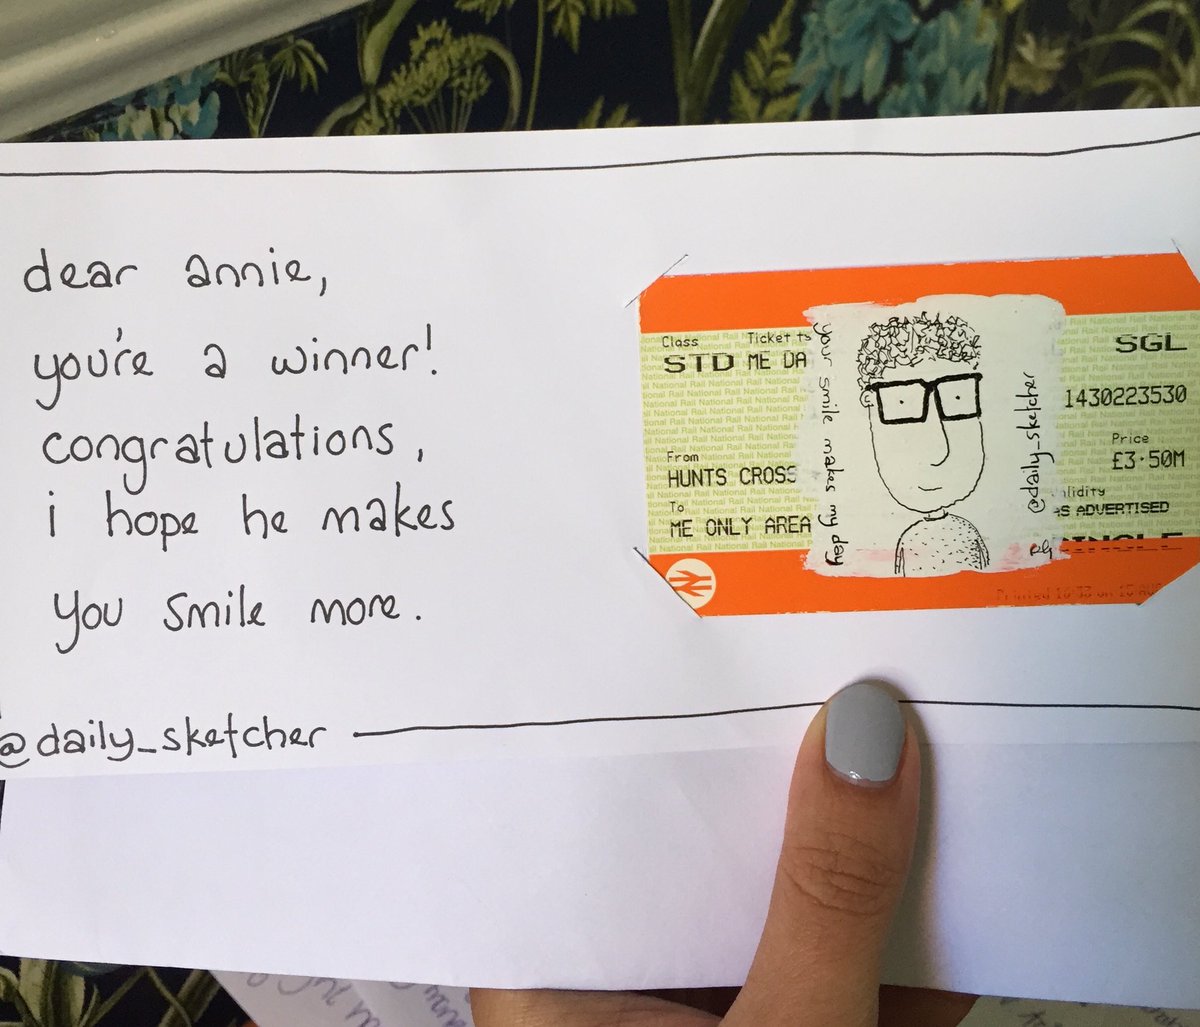 dear annie,
you're a winner!
congratulations,
i hope he makes
you smile more.
@daily_sketcher
Class Ticket ty
STD ME DA
From
HUNTS CROSS
To
ME ONLY AREA
your smile makes my day
@daily_sketcher
SGL
1430223530
Price
£3·50M
alidity
AS ADVERTISED